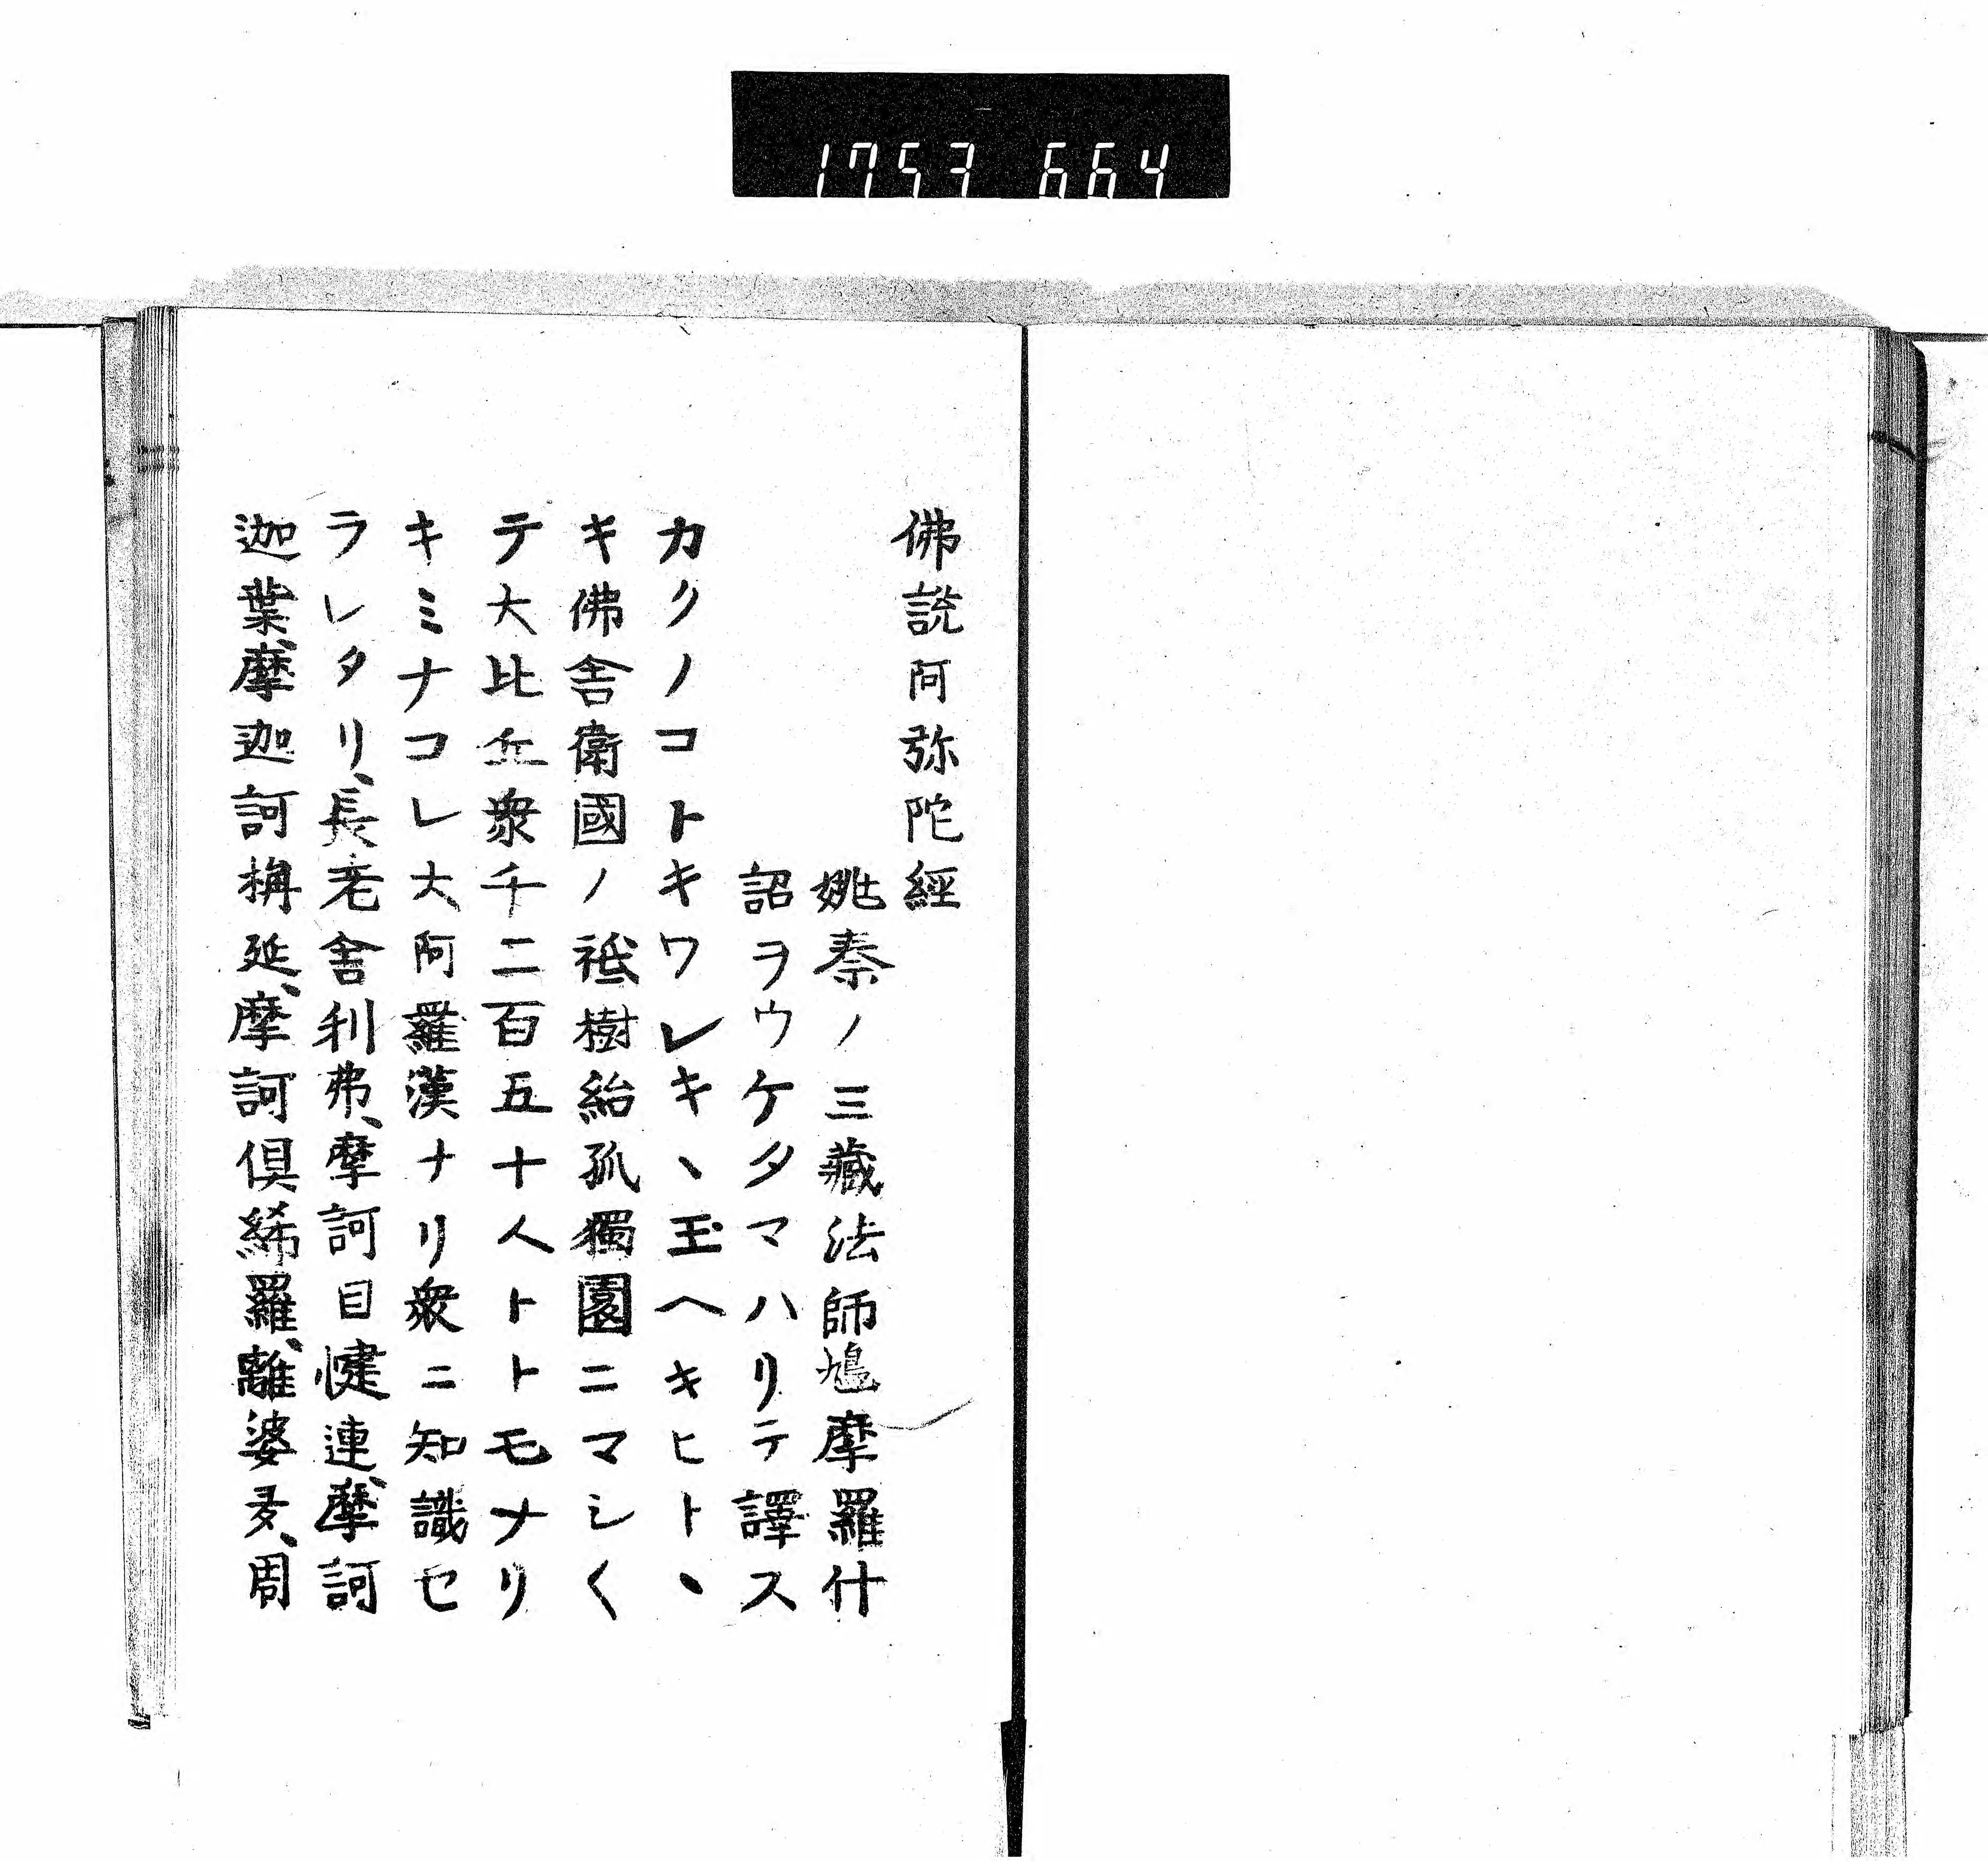 1753 664
佛説阿弥陀經
姚秦ノ三藏法師鳩摩羅什
詔ヲウケタマハリテ譯ス
カクノコトキワレキヽ玉ヘキヒトヽ
キ佛舎衛國ノ祇樹給孤獨園ニマシ〱
テ大比丘衆千二百五十人トトモナリ
キミナコレ大阿羅漢ナリ衆ニ知識セ
ラレタリ、長老舎利弗、摩訶目犍連、摩訶
迦葉、摩迦訶栴延、摩訶倶絺羅、離婆多、周